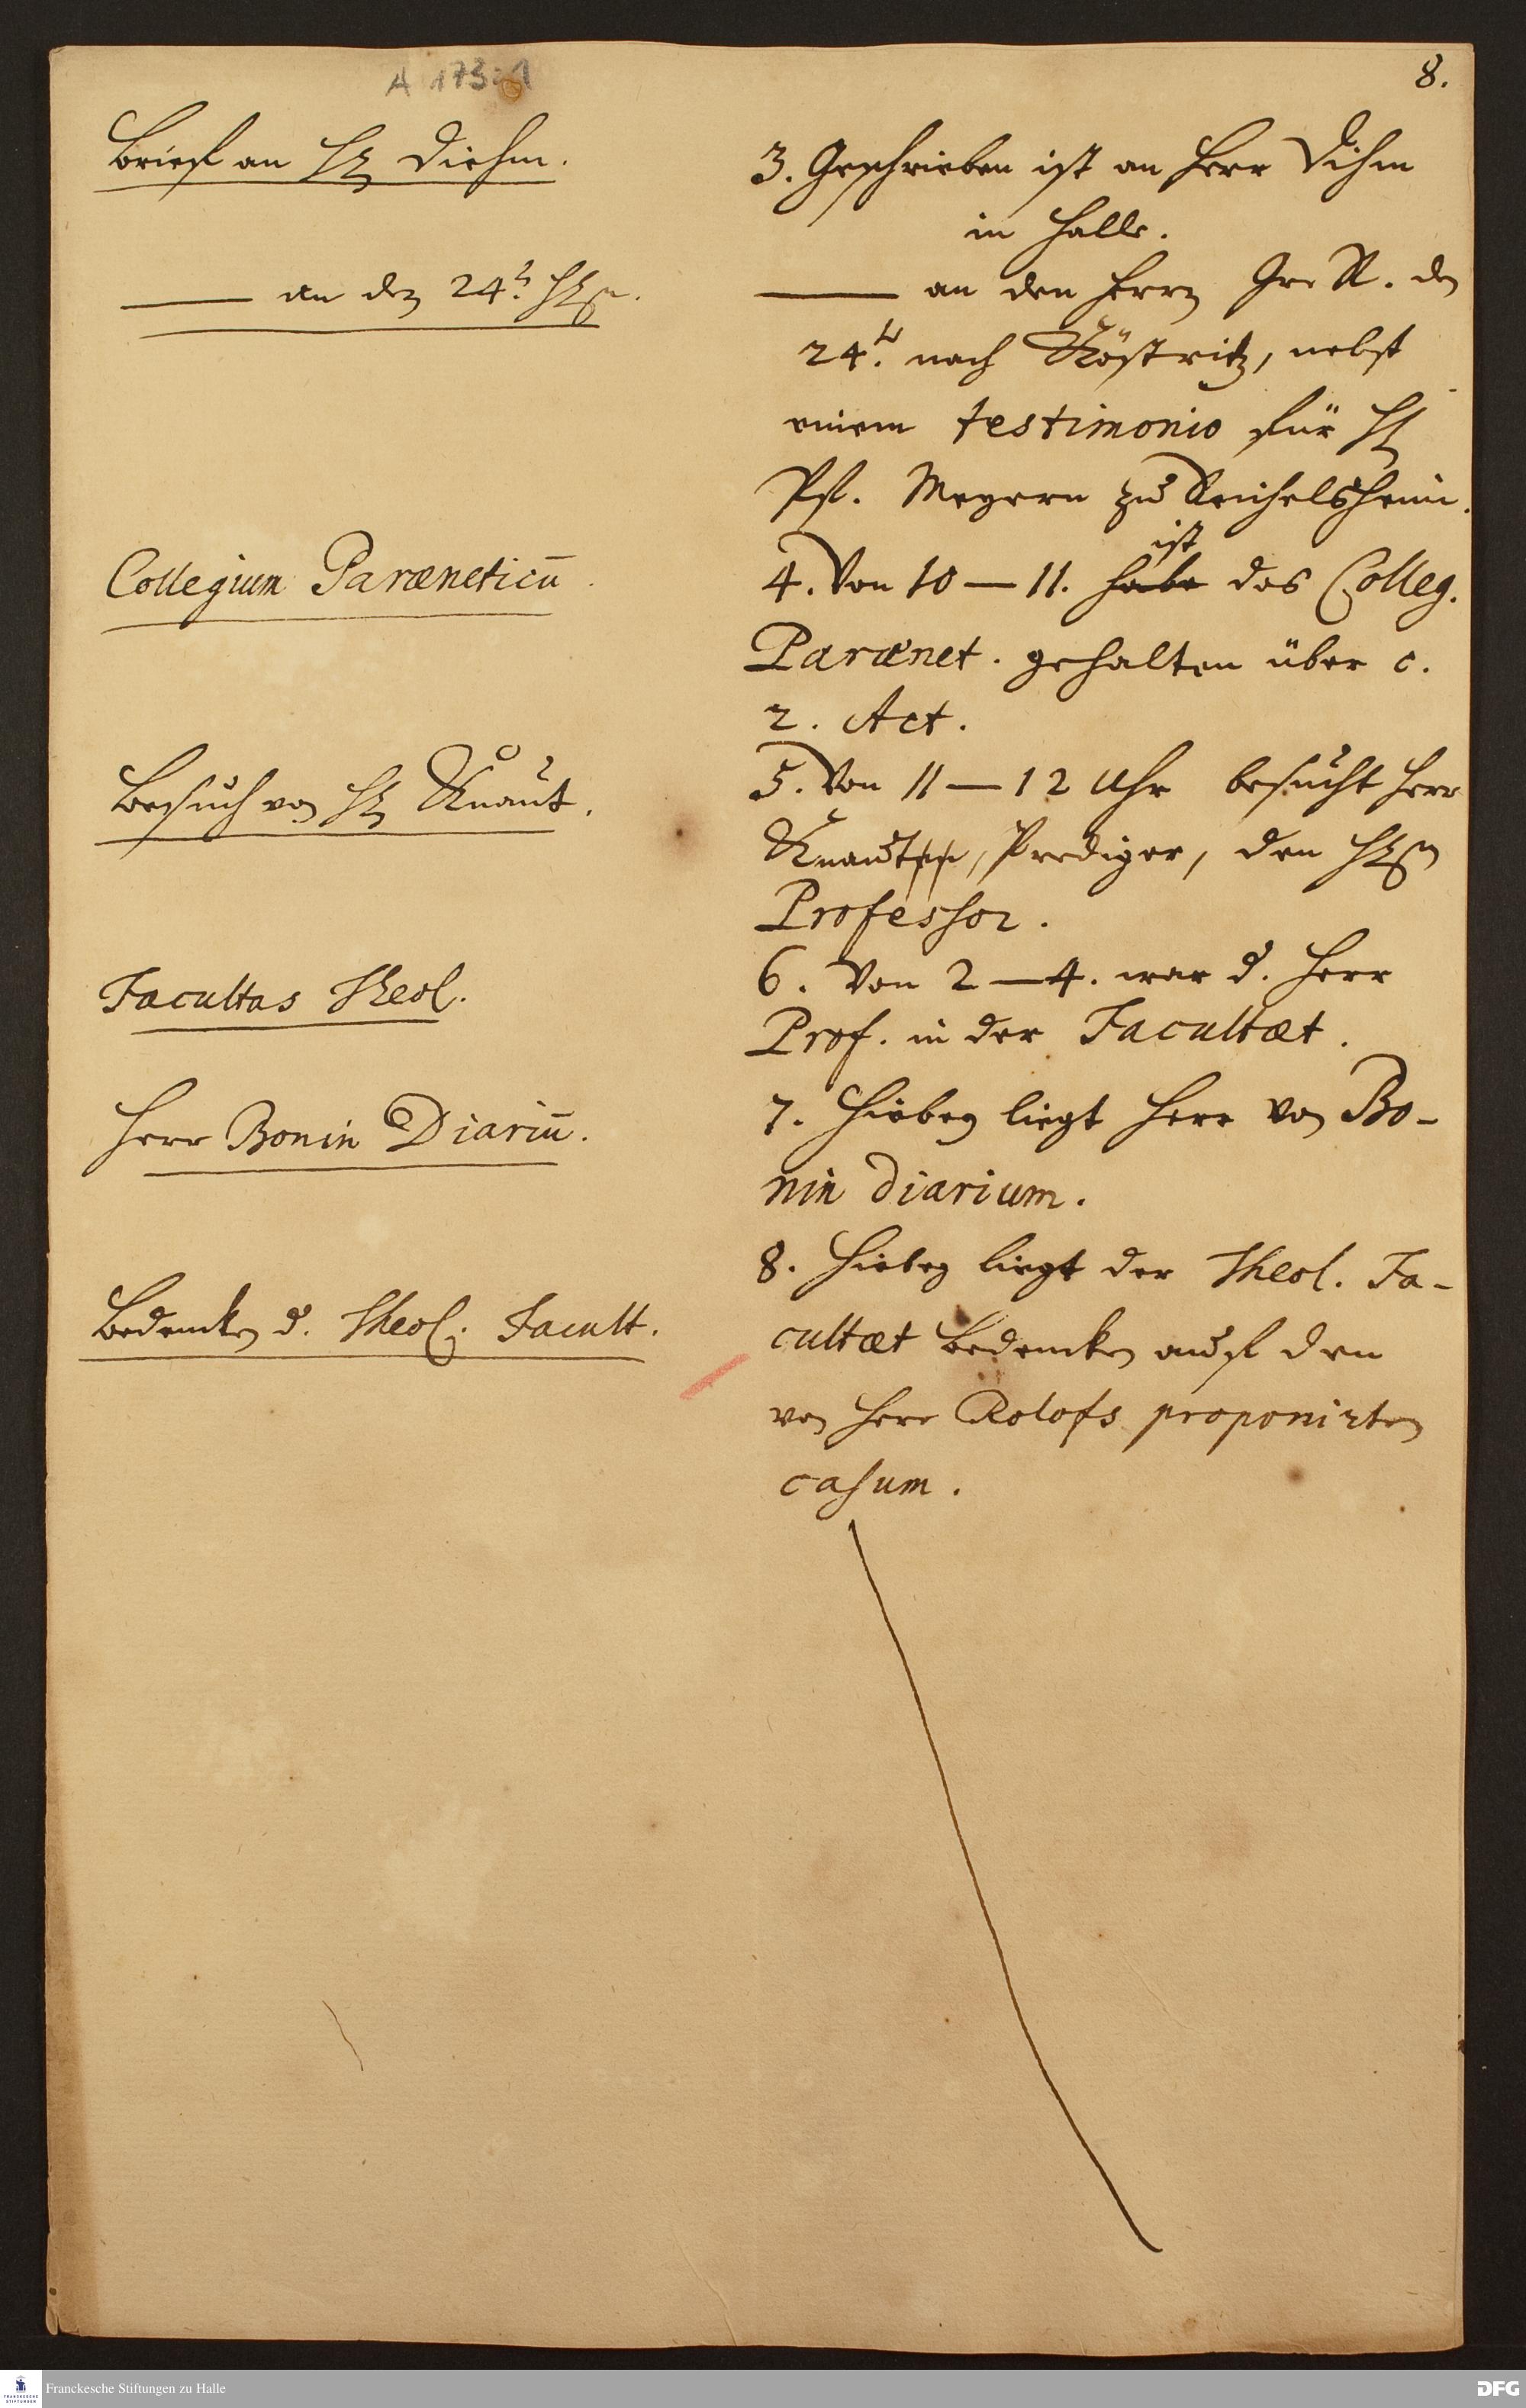 A 173:1
8.
Brief an H. Diehm.
3. Geschrieben ist an Herr Dihm
in Halle.
——— an den 24t. H.
——— an den Herrn Gr. R. den
24t. nach Köstritz, nebst
einem testimonio für H.
Pf. Meyern zu Reichelsheim.
Collegium Paræneticū.
ist
4. Von 10—11. habe das Colleg.
Parænet. gehalten über c.
2. Act.
Besuch von H. Knaut.
5. Von 11—12 Uhr besucht Herr
Knaut, Prediger, den H.
Professor.
Facultas Theol.
6. Von 2—4. war d. Herr
Prof. in der Facultæt.
Herr Bonin Diariū.
7. Hiebey liegt Herr von Bo-
nin Diarium.
8. Hiebey liegt der Theol. Fa-
Bedencken d. Theol. Facult.
cultæt Bedencken auf den
von Herr Rolofs proponirten
casum.
Franckesche Stiftungen zu Halle
DFG